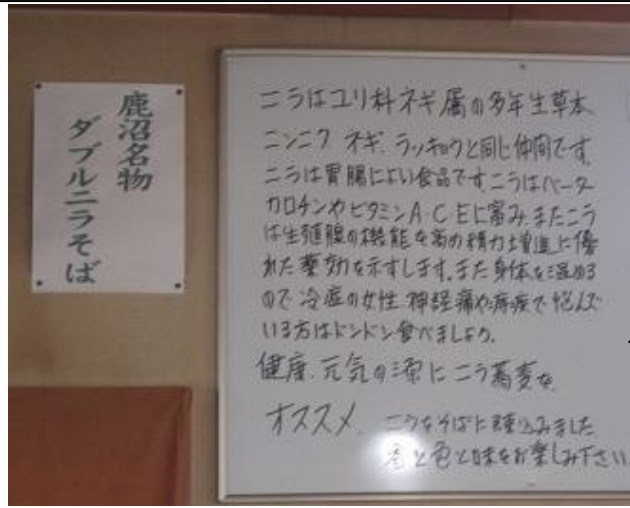 鹿沼名物
ダブルニラそば
ニラはユリ科ネギ属の多年生草本
ニンニク ネギ、ラッキョウと同じ仲間です。
ニラは胃腸によい食品です。ニラはベータ
カロチンやビタミンA・C・Eに富み、またニラ
は生殖腺の機能を高め精力増進に優
れた薬効を示すします。また身体を温める
ので冷症の女性、神経痛や痔疾で悩んで
いる方はドンドン食べましょう。
健康、元気の源にニラ蕎麦を
オススメ、ニラをそばに練込みました
香と色と味をお楽しみ下さい